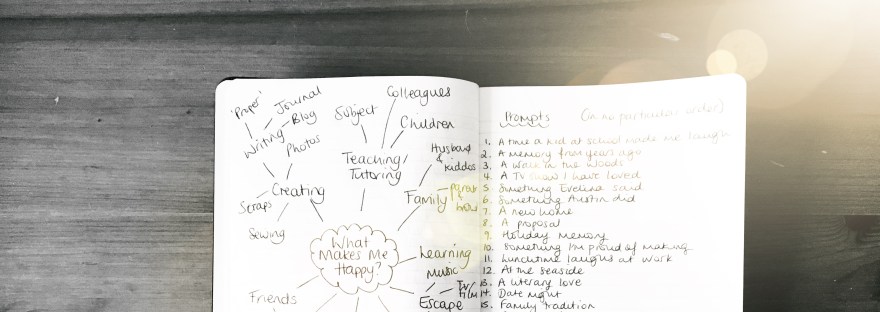 'Proper'
Journal
Blog
Writing
Photos
Creating
Scraps
Sewing
Subject
Colleagues
Children
Teaching/
Tutoring
Husband
& kiddos
Family
What
Makes Me
Happy?
Learning
Music
TV/
Film
Escape
Friends
Prompts (in no particular order)
1. A time a kid at school made me laugh
2. A memory from years ago
3. A walk in the woods
4. A TV show I have loved
5. Something Evelina said
6. Something Austin did
7. A new home
8. A proposal
9. Holiday memory
10. Something I'm proud of making
11. Lunchtime laughs at work
12. At the seaside
13. A literary love
14. Date night
15. Family tradition